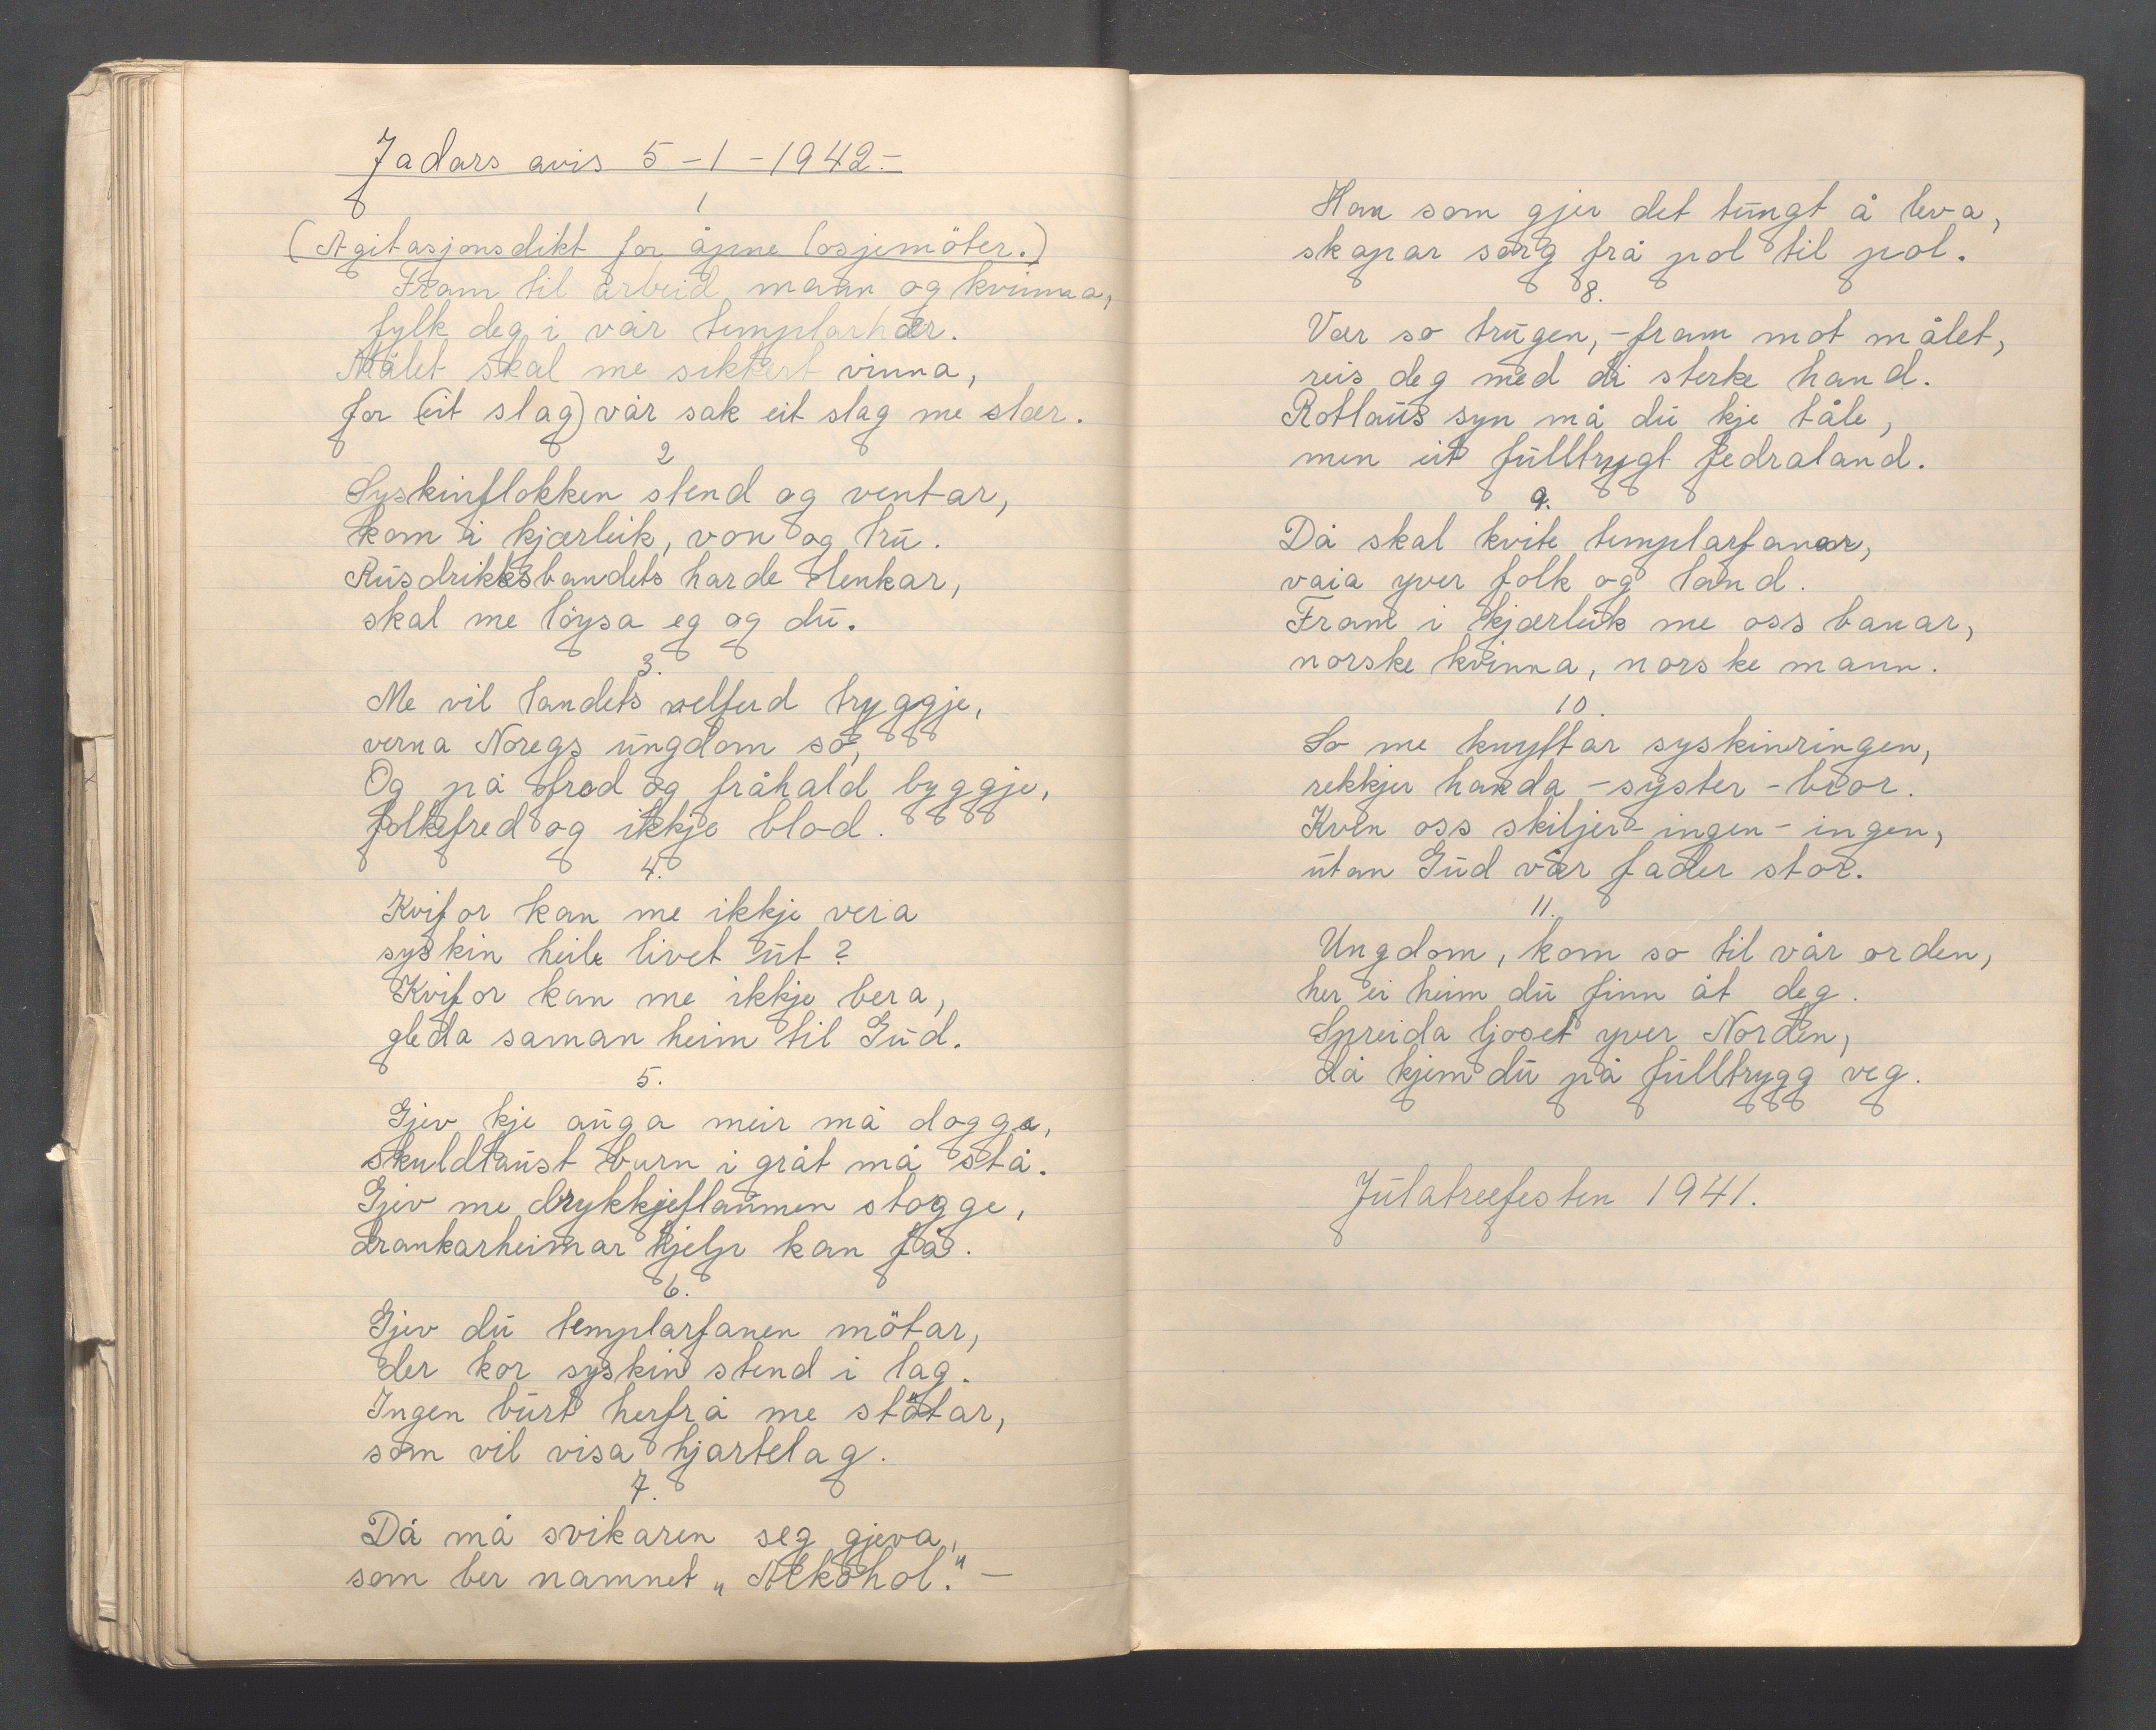 Jadars avis 5-1-1942.-
1
(Agitasjonsdikt for åpne losjemöter.)
Fram til arbeid mann og kvinna,
fylk deg i vår templarhær.
Målet skal me sikkert vinna,
for (eit slag) vår sak eit slag me slær.
2
Syskinflokken stend og ventar,
kom i kjærleik, von og tru.
Rusdrikksbandets harde lenkar,
skal me löysa eg og du.
3.
Me vil landets velferd tryggje,
verna Noregs ungdom so,
Og på fred og fråhald byggje,
folkefred og ikkje blod.
4.
Kvifor kan me ikkje vera
syskin heile livet ut?
Kvifor kan me ikkje bera,
gleda saman heim til Gud.
5.
Gjev kje auga meir må dogga,
skuldlaust burn i gråt må stå.
Gjev me drykkjeflaumen stogge,
drankarheimar hjelp kan få.
6.
Gjev du templarfanen mötar,
der kor syskin stend i lag.
Ingen burt herfrå me stötar,
som vil visa hjartelag.
7.
Då må svikaren seg gjeva,
som ber namnet „Alkohol." -
Han som gjer det tungt å leva,
skapar sorg frå pol til pol.
8.
Vær so trugen, - fram mot målet,
reis deg med di sterke hand.
Rotlaus syn må du kje tåle,
men eit fulltrygt fedraland.
9.
Då skal kvite templarfanar,
vaia yver folk og land.
Fram i kjærleik me oss banar,
norske kvinna, norske mann.
10.
So me knyttar syskinringen,
rekkjer handa - syster - bror.
Kven oss skiljer - ingen - ingen,
utan Gud vår fader stor.
11.
Ungdom, kom so til vår orden,
her ei heim du finn åt deg.
Spreida ljoset yver Norden,
då kjem du på fulltrygg veg.
Julatreefesten 1941.